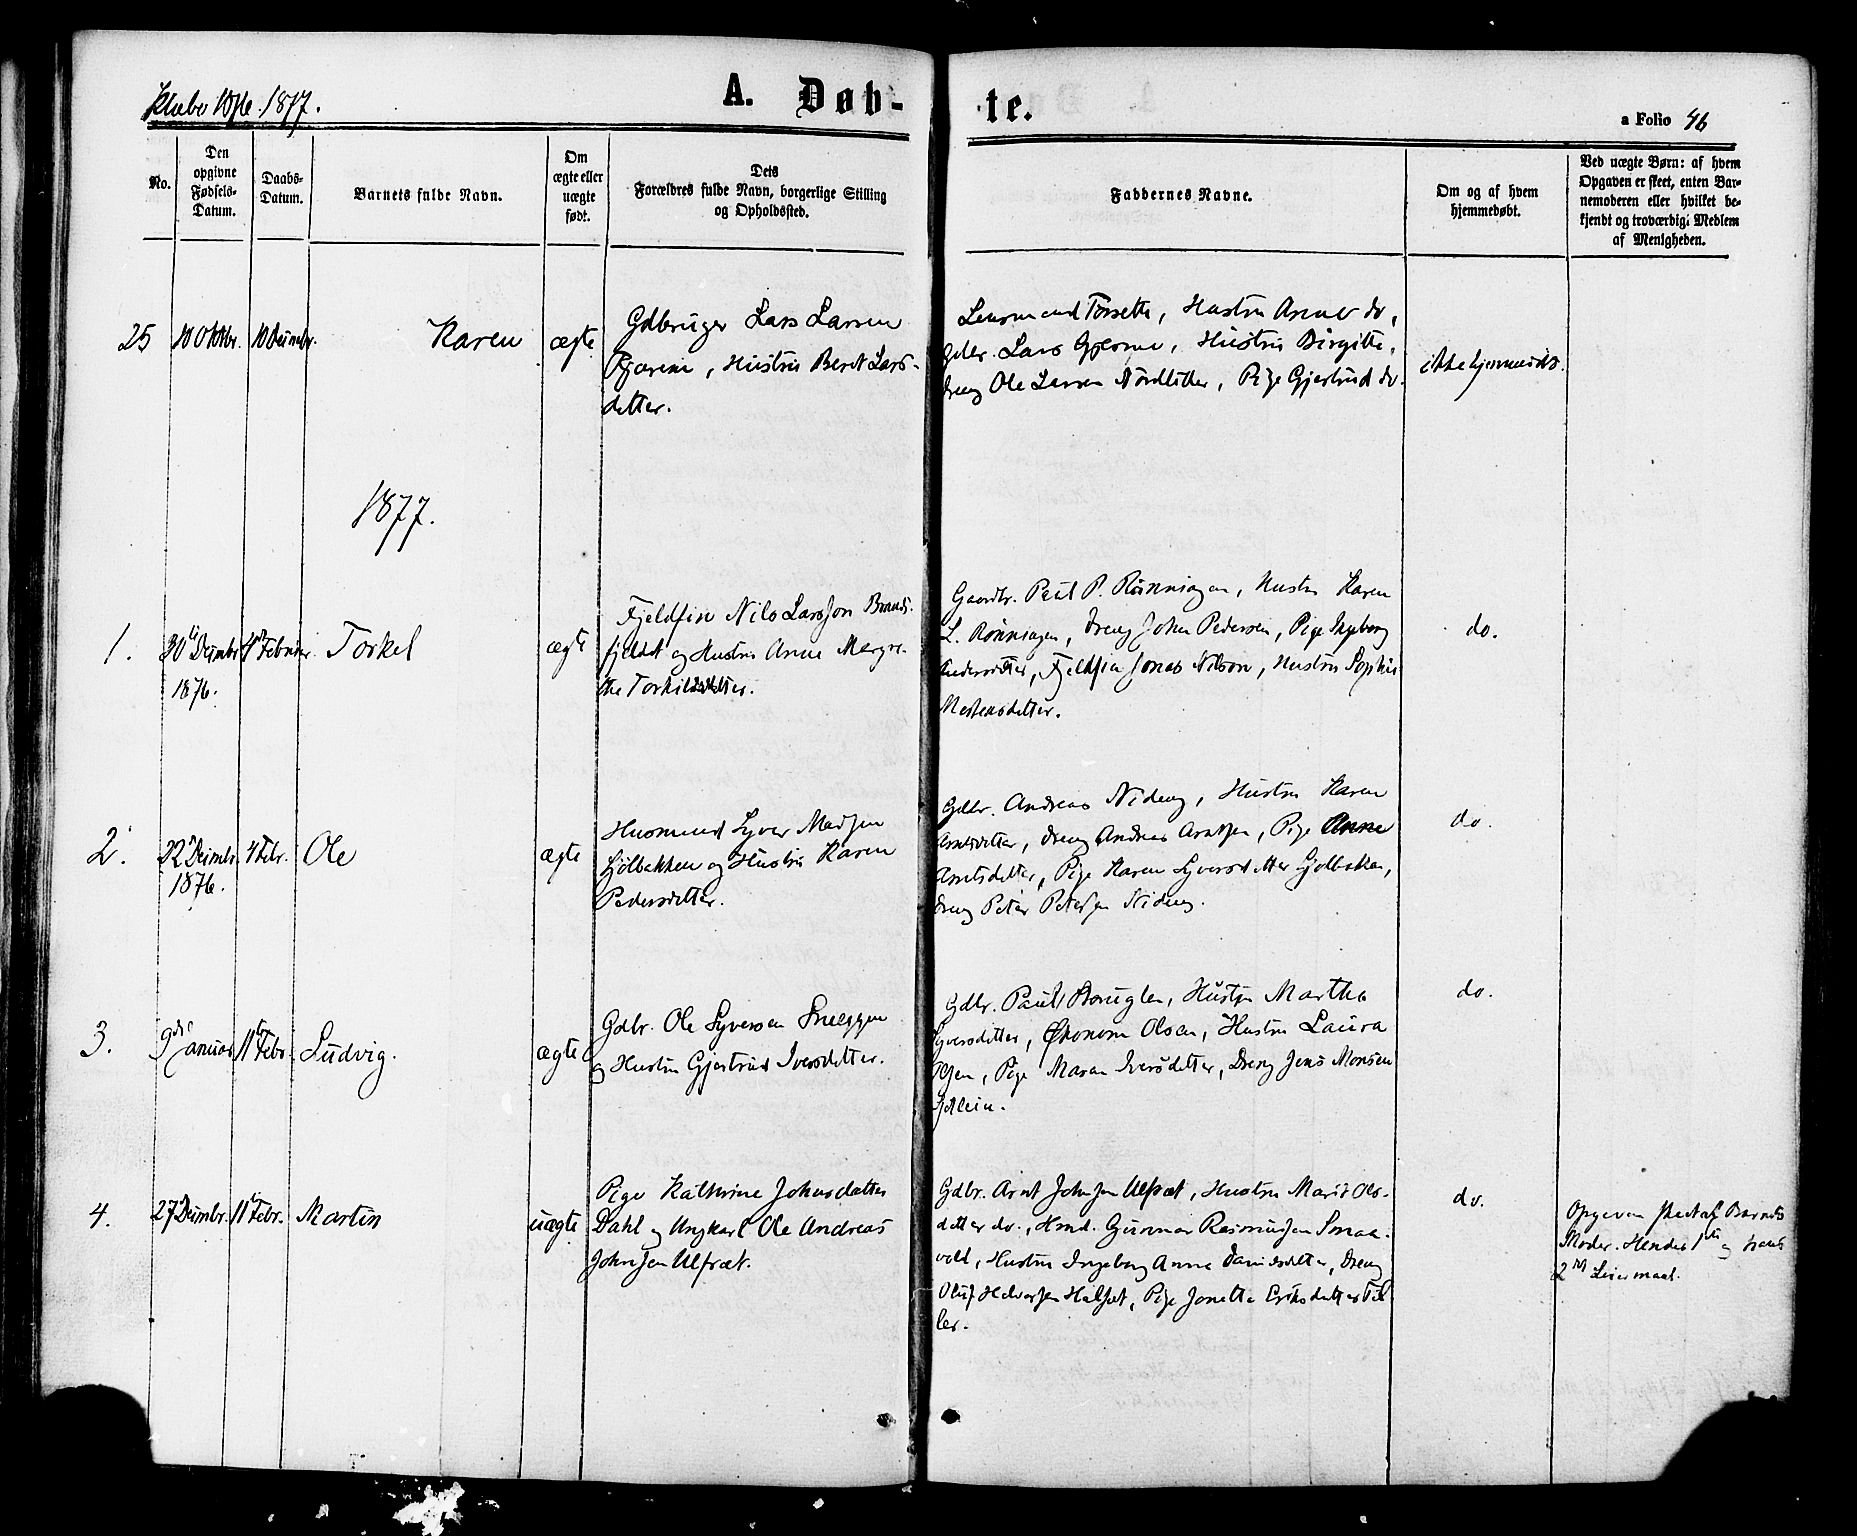 Klæbo 1876. 1877.
A. Døb-
te.
a Folio 46
No.
Den
opgivne
Fødsels-
Datum.
Daabs-
Datum.
Barnets fulde Navn.
Om
ægte eller
uægte
født.
Dets
Forældres fulde Navn, borgerlige Stilling
og Opholdssted.
Faddernes Navne.
Om og af hvem
hjemmedøbt.
Ved uægte Børn: af hvem
Opgaven er skeet, enten Bar-
nemoderen eller hvilket be-
kjendt og troværdigt Medlem
af Menigheden.
25
10 Oktbr.
10 Decmbr.
Karen
ægte
Gdbruger Lars Larsen
Hustru Beret Lars-
datter.
Lensmand Forseth, Hustru do,
Gdbr. Lars Gjerme, Hustru Birgitte,
Dreng Ole Larsen Nordsetter, Pige Gjertrud do.
ikke hjemmedøbt.
1877.
1.
30te Decmbr
1876.
4de Februar
Torkel
ægte
Fjeldfin Nils Larsson Brands-
fjeldet og Hustru Anne Margre-
the Torkildsdatter.
Gaardbr. Paul P. Rønningen, Hustru Karen
L. Rønningen, Dreng John Pedersen, Pige Ingeborg
Andersdatter, Fjeldfin Jonas Nilson, Hustru Sophie
Mortensdatter.
do.
2.
22de Decmbr
1876.
4 Febr.
Ole
ægte
Husmand Syver Madsen
Gjølbakken og Hustru Karen
Pedersdatter.
Gdbr. Andreas Nideng, Hustru Karen
Arntsdatter, Dreng Andreas Arntsen, Pige Anne
Arntsdatter, Pige Karen Syversdatter Gjølbakken,
Dreng Peter Petersen Nideng.
do.
3.
9de Januar
11te Febr.
Ludvig.
ægte
Gdbr. Ole Syversen Sneeggen
og Hustru Gjertrud Iversdatter.
Gdbr. Paul Bruglen, Hustru Martha
Syversdatter, Økonom Olsen, Hustru Laura
Olsen, Pige Maren Iversdatter, Dreng Jens Monsen
do.
4.
27 Decmbr.
11te Febr.
Martin
uægte
Pige Kathrine Johnsdatter
Dahl og Ungkarl Ole Andreas
Johnsen Ulfsæt.
Gdbr. Arnt Johnsen Ulfsæt, Hustru Marit Ols-
datter do., Hmd. Gunnar Rasmussen Smaa-
vold, Hustru Ingeborg Anna Danielsdatter, Dreng
Oluf Halvorsen Halset, Pige Jonetta Eriksdatter Til-
ler.
do.
Opgaven skeet af Barnets
Moder. Hendes 1ste og hans
2det Leiermaal.